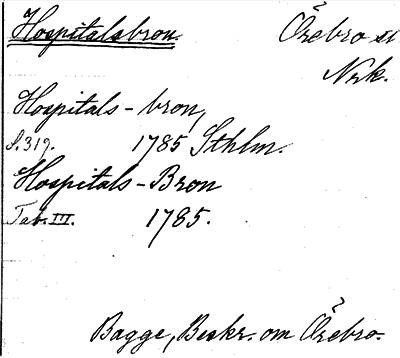 Hospitalsbron Örebro st
Nrk.
Hospitals-bron,
S.319. 1785 Sthlm.
Hospitals-Bron
Tab. III. 1785.
Bagge, Beskr. om Örebro.